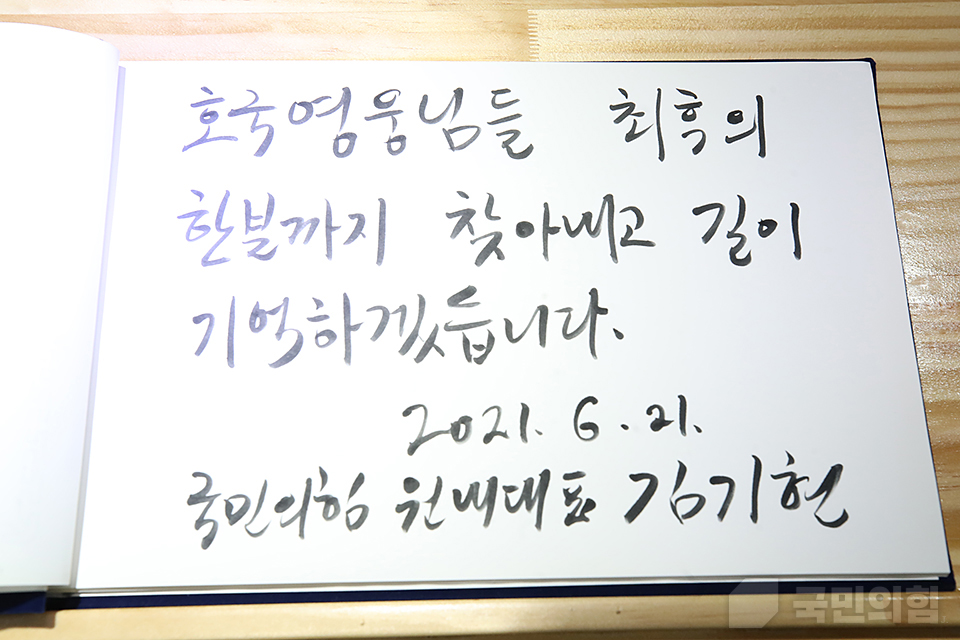 호국영웅님들 최후의
한분까지 찾아내고 길이
기억하겠습니다.
2021. 6. 21.
국민의힘 원내대표 김기현
국민의힘